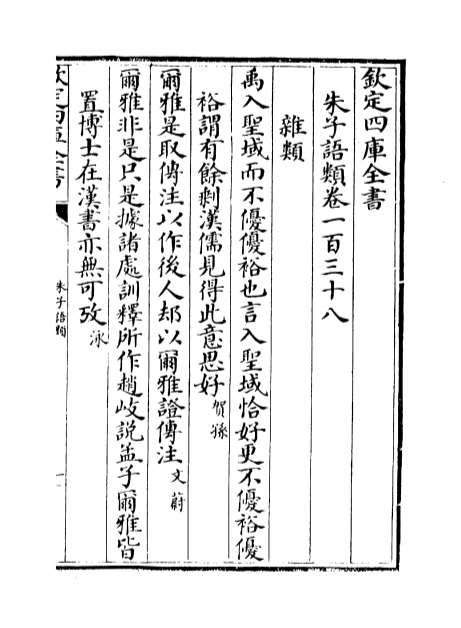 欽定四庫全書
朱子語類卷一百三十八
雜類
禹入聖域而不優優裕也言入聖域恰好更不優裕優
裕謂有餘剩漢儒見得此意思好賀孫
爾雅是取傳注以作後人却以爾雅證傳注文蔚
爾雅非是只是據諸處訓釋所作趙岐説孟子爾雅皆
置博士在漢書亦無可攷泳
欽定四庫全書
朱子語類
一